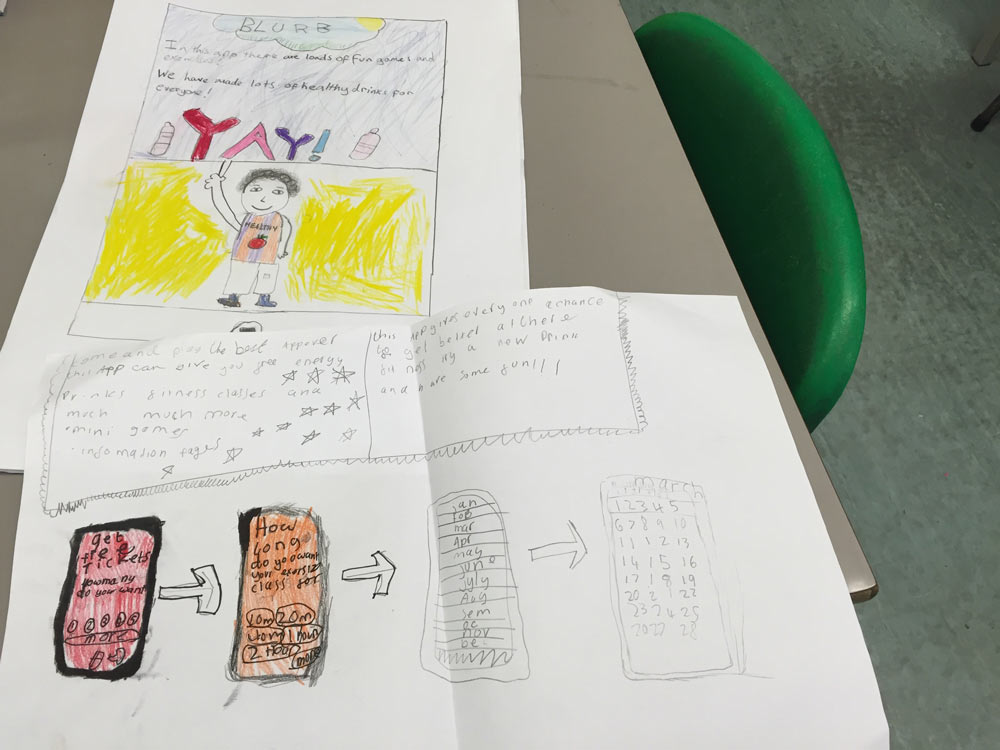 BLURB
In this app there are loads of fun games and
exercises!
We have made lots of healthy drinks for
everyone!
YAY!
HEALTHY
come and play the best App ever
this App can give you free energy
Drinks fitness classes and
much much more
• mini games
• information pages
this App gives every one a chance
to get better at there
fitness try a new Drink
and have some fun!!!
get
free
Tickets
how many
do you want
more
How
Long
do you want
your exersize
class for
10m 20m
1 hour
2 Hour
more
jan
feb
mar
Apr
may
June
July
Aug
sem
oc
nov
De
march
1 2 3 4 5
6 7 8 9 10
11 12 13
14 15 16
17 18 19
20 21 22
23 24 25
28